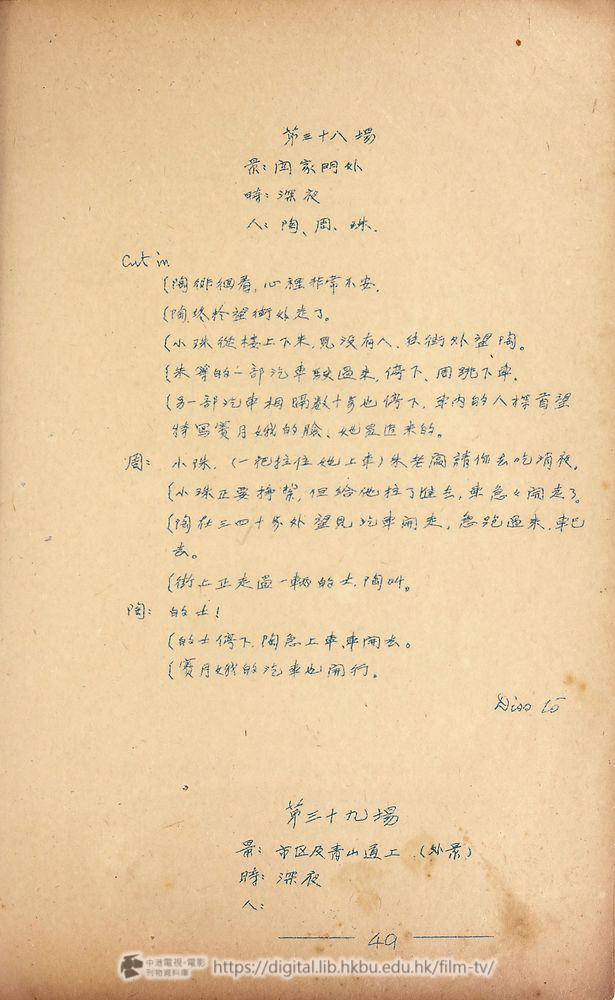 第三十八場
景：周家門外
時：深夜
人：陶、周、珠.
Cut in
{陶徘徊着,心裡非常不安.
{陶終於望街外走了。
{小珠從樓上下來,見沒有人、往街外望陶。
{朱等的一部汽車駛過來,停下、周跳下車.
{另一部汽車相隔數十步也停下,車內的人探首望
特寫賽月娥的臉、她是追來的。
周：小珠.(一把拉住她上車)朱老闆請你去吃消夜。
{小珠正要掙扎,但給他拉了進去,車急々開走了。
{陶在三四十步外望見汽車開走,急跑過來,車已
去。
{街上正走過一輛的士,陶叫。
陶：的士！
{的士停下,陶急上車,車開去。
{賽月娥的汽車也開行。
Diss to
第三十九場
景：市区及青山道上 (外景)
時：深夜
人：
49
中港電視·電影
刊物資料庫
https://digital.lib.hkbu.edu.hk/film-tv/